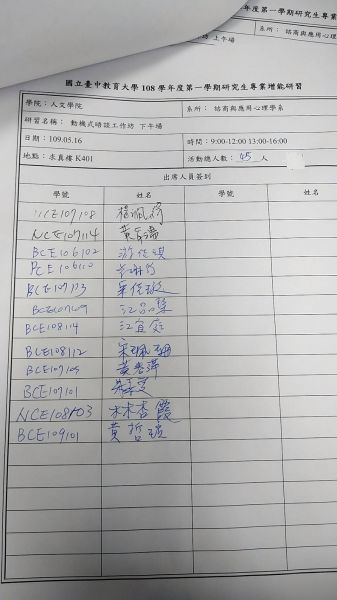 年度第一學期研究生專業
系所： 諮商與應用心理
坊 上午場
國立臺中教育大學 108 學年度第一學期研究生專業增能研習
學院：人文學院 系所： 諮商與應用心理學系
研習名稱： 動機式晤談工作坊 下午場
日期：109.05.16 時間：9:00-12:00 13:00-16:00
地點：求真樓 K401 活動總人數： 45 人
出席人員簽到
學號 姓名 學號 姓名
NCE107114 黃
BCE106102 游佳琪
BCE107113
江品
BCE108114 江宜庭
BCE108112 宋珮
BCE107105 黃
BCE107101
NCE108103 林杏霞
BCE109101 黃哲